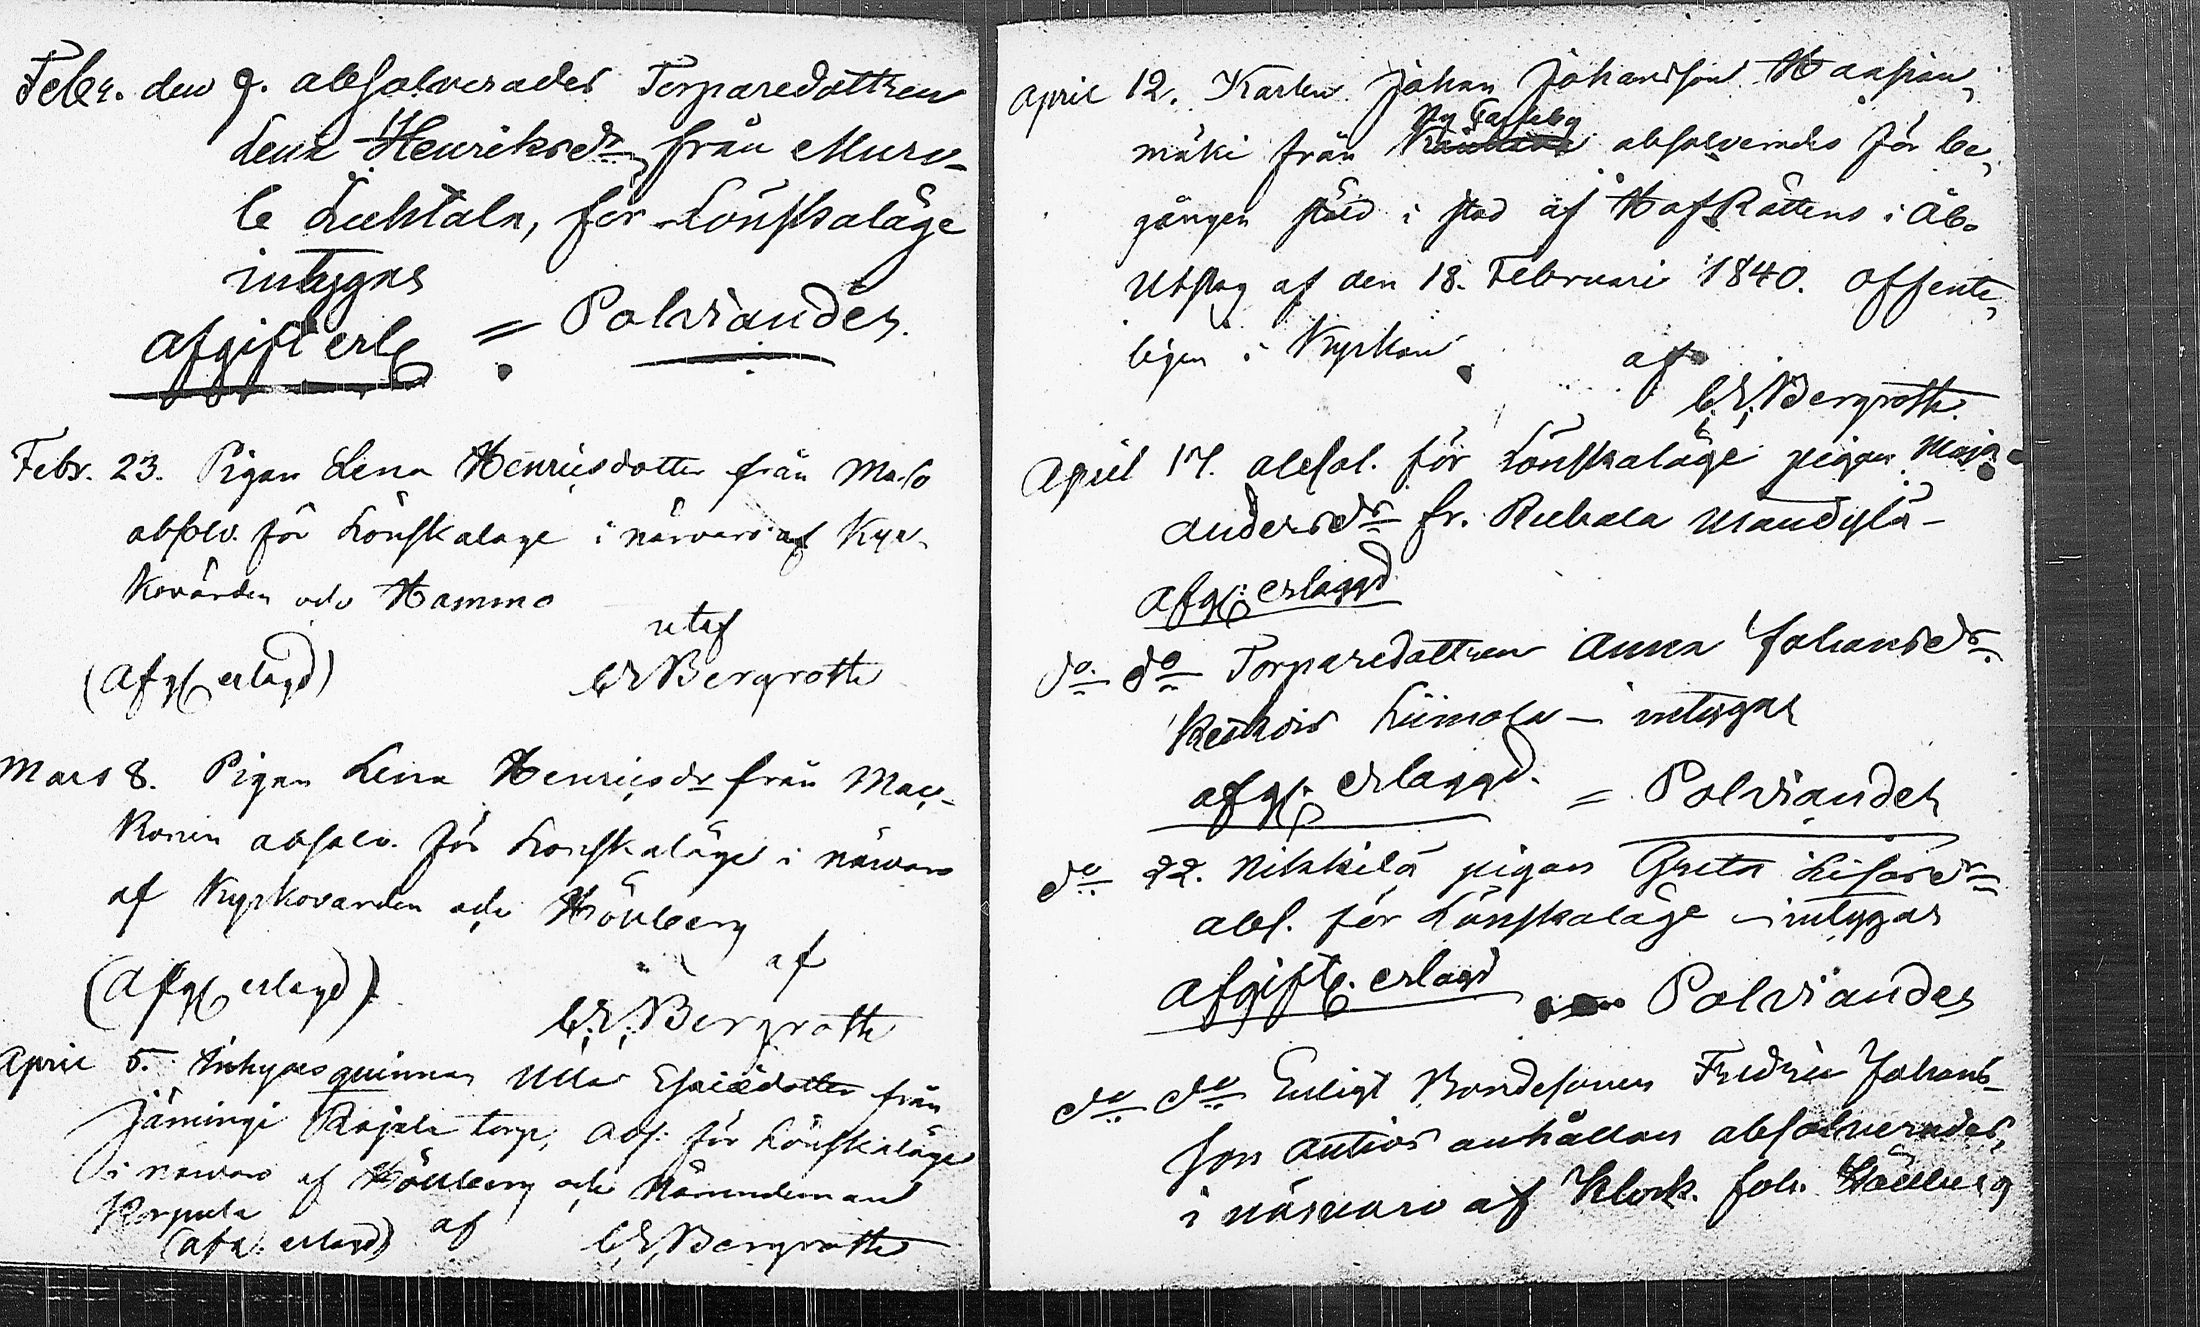 Febr. den 9. absolverades Torparedottren
Lena Henriksdr från Muru-
le Luhtala, för Lönskaläge
intygas
afgift erl = Polviander.
Febr. 23. Pigan Lena Henricsdotter från Maso
absolv. för Lönskalage i närvaro af Kyr-
kovärden och Hammo
utaf
(Afg erlagd) CE Bergroth
Mars 8. Pigan Lena Henricsdr från Mau-
konen absolv. för Lönskaläge i närvaro
af Kyrkovarden och Höckberg
af
(Afg erlagd) C.E. Bergroth
April 5. Inhyses quinnan Ulla Esaiedotter från
Jämingi Rajala torp, Abs. för Lönskaläge
i närvaro af Höckberg och Nämndeman
Korpula
(afg. erlagd) af C.E. Bergroth
April 12. Karlen Johan Johansson Haapan,
Ny Tasseby
mäki från absolverades för be,
gången stöld i stöd af HofRättens i Åbo
Utslag af den 18. Februari 1840. offent,
ligen i Kyrkan af
C.E. Bergroth.
April 17. absol. för Lönskaläge pigan Maja
Andersdr fr. Rubala
afg: erlaggd
do do Torparedottren Anna Johansdr
Keikois Liimola — intygas
afg. erlaggd. = Polviander
do 22. Nikkilä pigan Greta Lisasdr
abs. för Lönskaläge – intygas
afgift. erlagd Polviander
do do Enligt Bondesonen Fredric Johans-
son Antios anhållan absolverades,
i närvaro af Klock. Joh. Höckberg